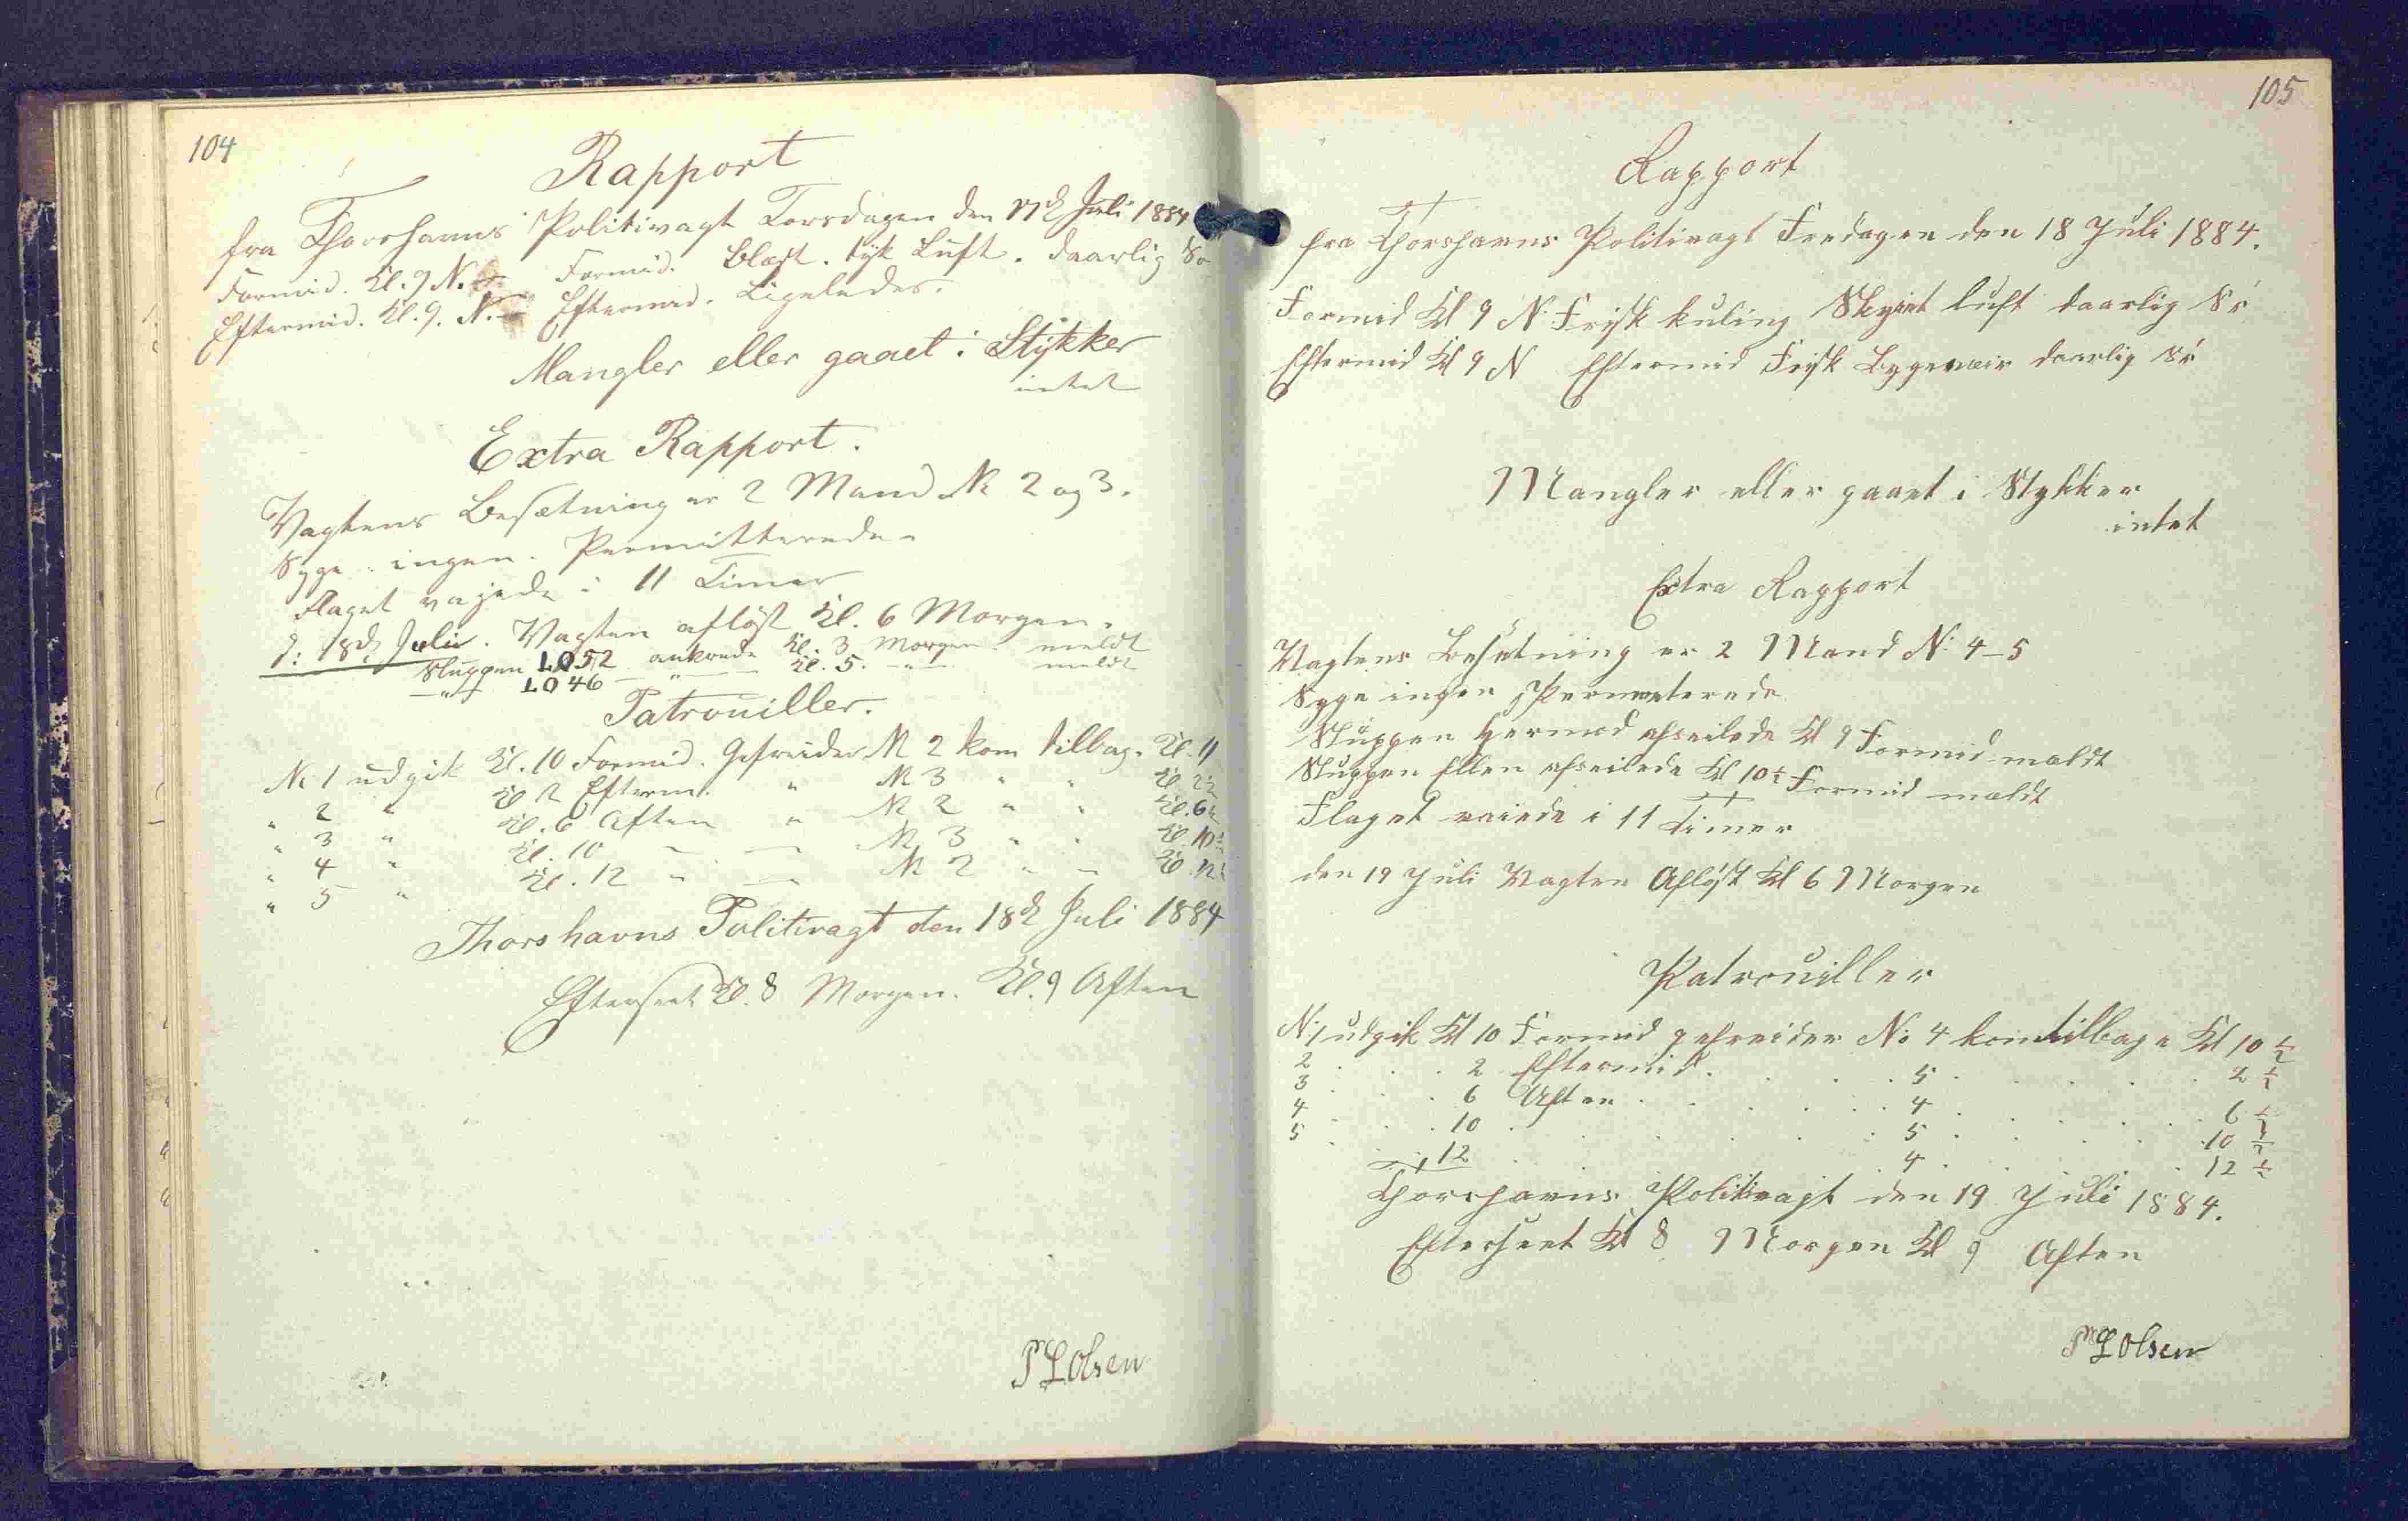 104
Rapport
fra Thorshavns Politivagt Torsdagen den 17d Juli 1884
Formid. Kl. 9 N. Formid. Blæst. tÿk Luft. daarlig Sø
Eftermid. Kl. 9. N. Eftermid. Ligeledes.
Mangler eller gaaet i Stÿkker
intet
Extra Rapport.
Vagtens Besætning er 2 Mand N 2 og 3.
Syge ingen. Permitterede
Flaget vajede i 11 Timer
d: 18d Juli. Vagten afløst Kl. 6 Morgen.
Sluppen LO52 ankrede Kl. 3 Morgen meldt
— " — LO46 — " — Kl. 5. — " — meldt
Patrouiller.
N: 1 udgik Kl. 10 Formid. Gefreider N 2 kom tilbage Kl. 11
" 2 " Kl 2 Efterm. " N 3 " " Kl. 2½
" 3 " Kl. 6 Aften " N 2 " " Kl. 6½
" 4 " Kl. 10 — — N 3 " " Kl. 10½
" 5 " Kl. 12 " — N 2 " — Kl. 12½
Thorshavns Politivagt den 18d Juli 1884
Efterseet Kl. 8 Morgen. Kl. 9 Aften
P L Olsen
105
Rapport
fra Thorshavns Politivagt Fredagen den 18 Juli 1884.
Formid Kl 9 N: Frisk kuling Skyet luft daarlig Sø
Eftermid Kl 9 N Eftermid Frisk Bygeveir daarlig Sø
Mangler eller gaaet i Stykker
intet
Extra Rapport
Vagtens Besetning er 2 Mand N: 4–5
Syge ingen Permeterede
Sluppen Hermod afseilede Kl 9 Formid meldt
Sluppen Ellen afseilede Kl 10½ Formid meldt
Flaget vaiede i 11 Timer
den 19 Juli Vagten Afløst Kl 6 Morgen
Patrouiller
N: 1 udgik Kl 10 Formid gefreider No 4 kom tilbage Kl 10 ½
2 . . . 2 Eftermid . . . 5 . . . 2 ½
3 . . . 6 Aften . . . 4 . . . 6 ½
4 . . . 10 . . . 5 . . . 10 ½
5 . . . 12 . . . 4 . . . 12 ½
Thorshavns Politivagt den 19 Juli 1884.
Efterseet Kl 8 Morgen Kl 9 Aften
P L Olsen